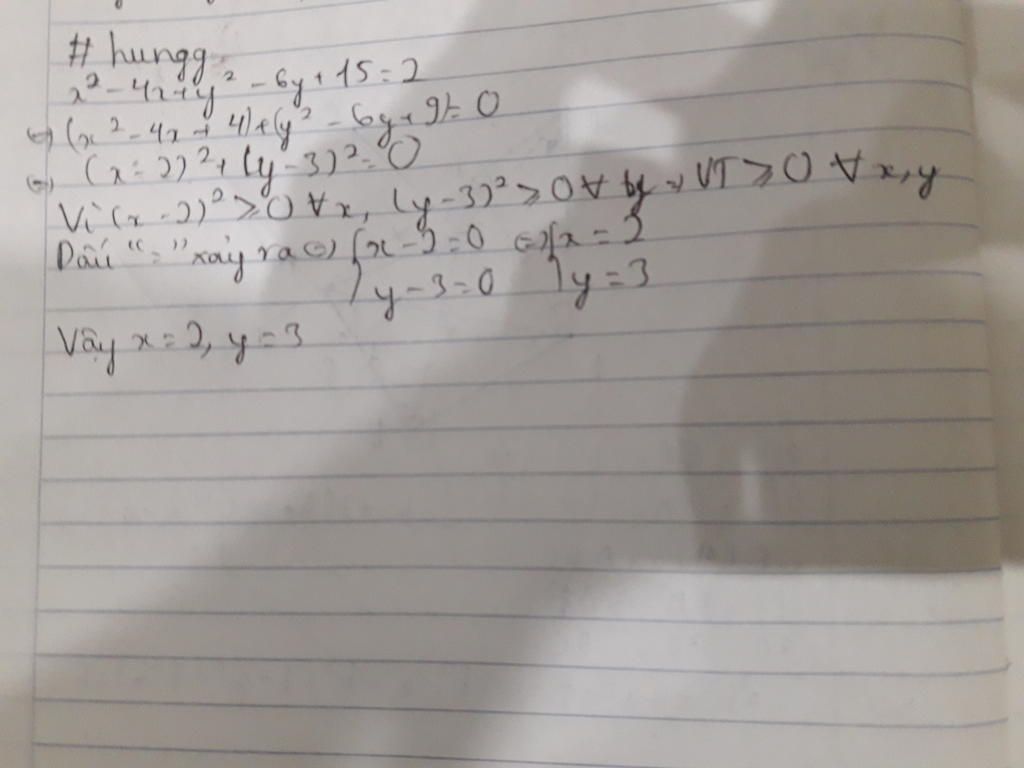 # hungg
x² - 4x + y² - 6y + 15 = 2
(=) (x² - 4x + 4) + (y² - 6y + 9) = 0
(=) (x - 2)² + (y - 3)² = 0
Vì (x - 2)² ≥ 0 ∀ x, (y - 3)² ≥ 0 ∀ y => VT ≥ 0 ∀ x, y
Dấu "=" xảy ra (=) { x - 2 = 0 (=) { x = 2
y - 3 = 0 y = 3
Vậy x = 2, y = 3